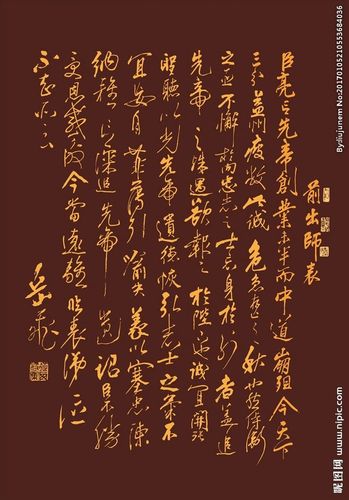 前出師表
臣亮言先帝創業未半而中道崩殂今天下
三分益州疲敝此誠危急存亡之秋也然侍衛
之臣不懈於內忠志之士忘身於外者蓋追
先帝之殊遇欲報之於陛下誠宜開張
聖聽以光先帝遺德恢弘志士之氣不
宜妄自菲薄引喻失義以塞忠諫
納雅言深追先帝遺詔臣不勝
受恩感激今當遠離臨表涕泣
不知所云
岳飛
By:liujunem No:20170105210553684036
昵图网 www.nipic.com